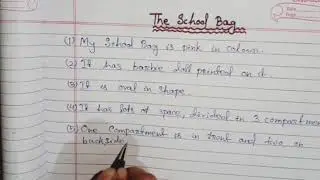 The School Bag
(1) My School Bag is pink in colour.
(2) It has barbie doll printed on it.
(3) It is oval in shape.
(4) It has lots of space, divided in 3 compartment
(5) One compartment is in front and two in
backside